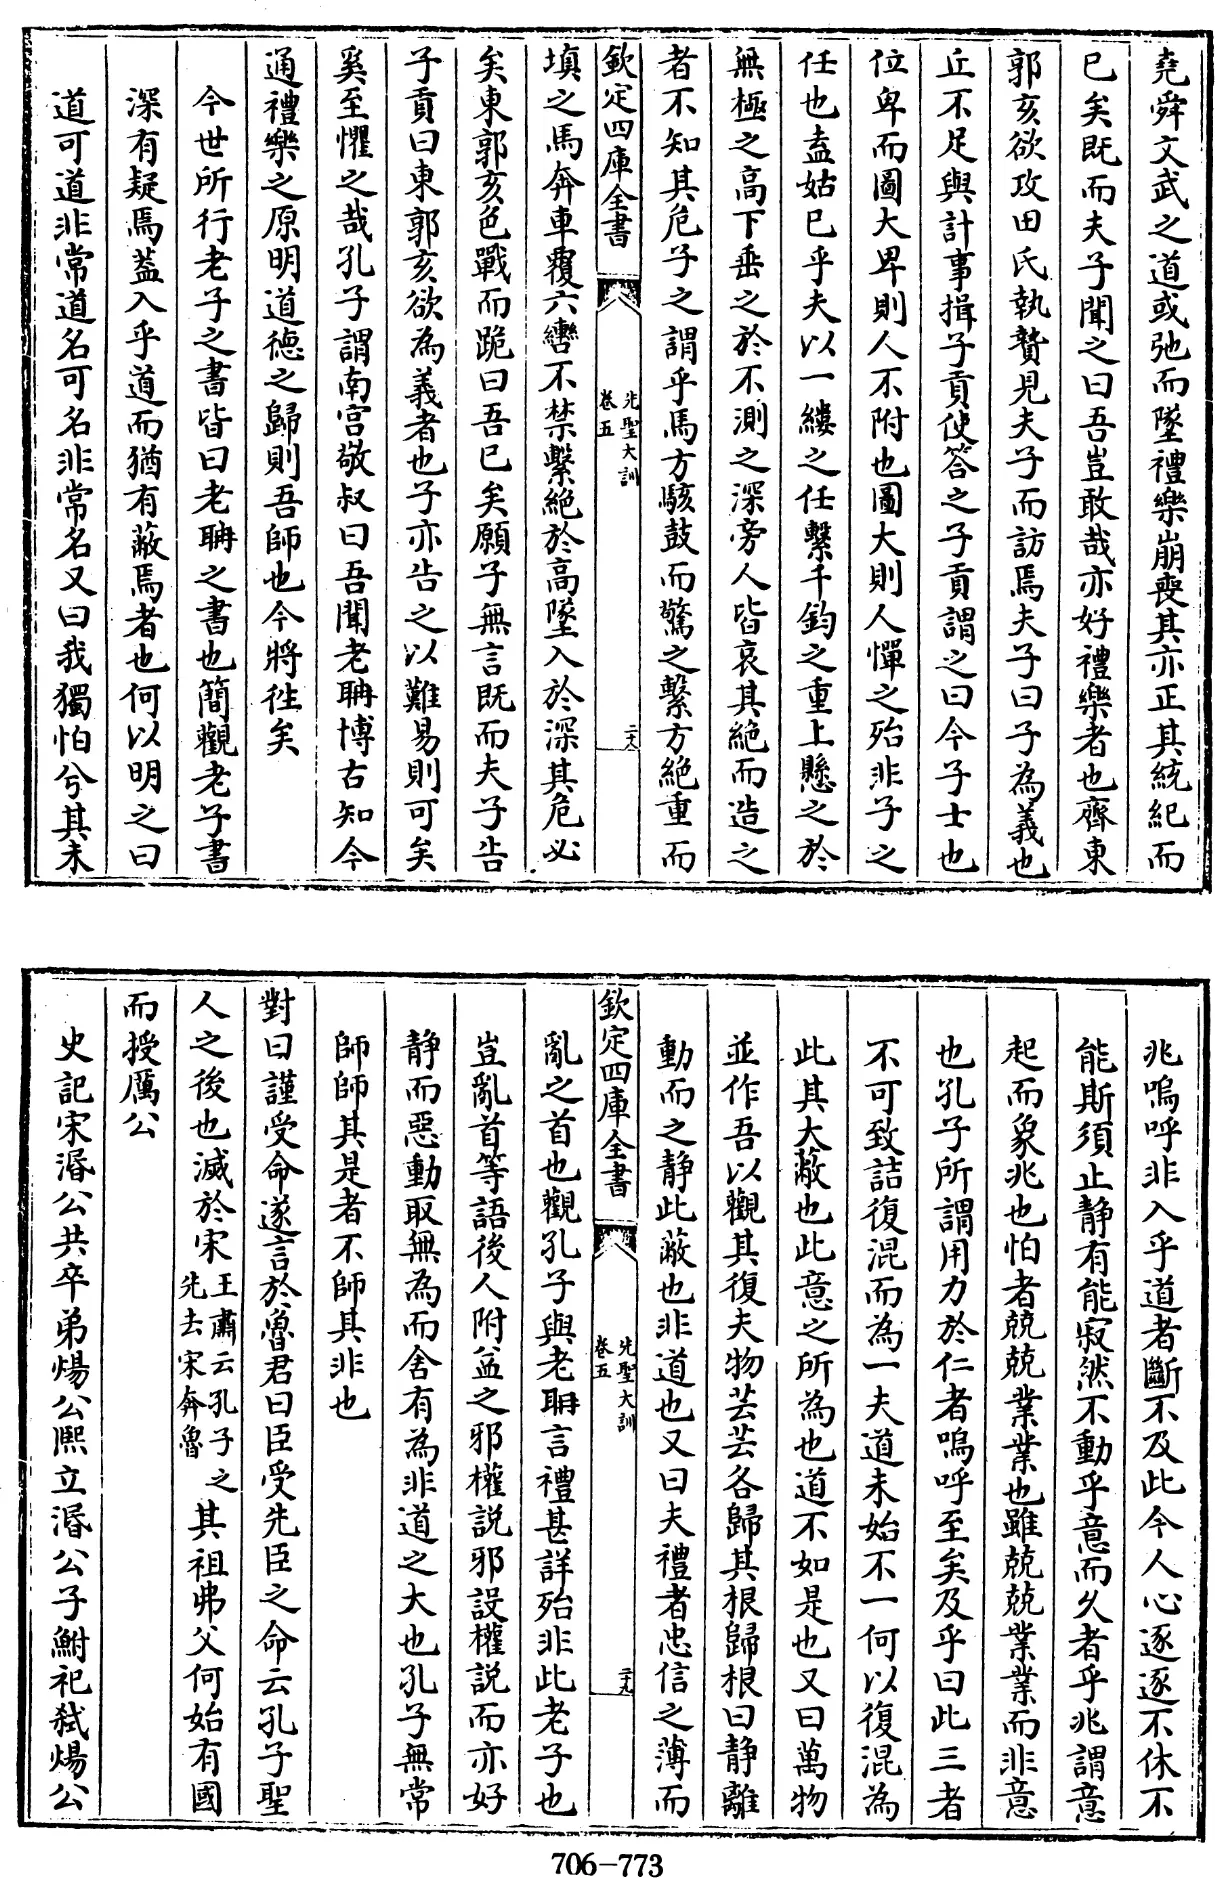 堯舜文武之道或弛而墜禮樂崩喪其亦正其統紀而
已矣既而夫子聞之曰吾豈敢哉亦好禮樂者也齊東
郭亥欲攻田氏執贄見夫子而訪焉夫子曰子為義也
丘不足與計事揖子貢使答之子貢謂之曰今子士也
位卑而圖大卑則人不附也圖大則人憚之殆非子之
任也盍姑已乎夫以一縷之任繫千鈞之重上懸之於
無極之高下垂之於不測之深旁人皆哀其絕而造之
者不知其危子之謂乎馬方駭鼓而驚之繫方絕重而
欽定四庫全書
先聖大訓
卷五
二十八
填之馬奔車覆六轡不禁繫絕於高墜入於深其危必
矣東郭亥色戰而跪曰吾已矣願子無言既而夫子告
子貢曰東郭亥欲為義者也子亦告之以難易則可矣
奚至懼之哉孔子謂南宮敬叔曰吾聞老聃博古知今
通禮樂之原明道德之歸則吾師也今將徃矣
今世所行老子之書皆曰老聃之書也簡觀老子書
深有疑焉蓋入乎道而猶有蔽焉者也何以明之曰
道可道非常道名可名非常名又曰我獨怕兮其未
兆嗚呼非入乎道者斷不及此今人心逐逐不休不
能斯須止静有能寂然不動乎意而久者乎兆謂意
起而象兆也怕者兢兢業業也雖兢兢業業而非意
也孔子所謂用力於仁者嗚呼至矣及乎曰此三者
不可致詰復混而為一夫道未始不一何以復混為
此其大蔽也此意之所為也道不如是也又曰萬物
並作吾以觀其復夫物芸芸各歸其根歸根曰静離
動而之静此蔽也非道也又曰夫禮者忠信之薄而
欽定四庫全書
先聖大訓
卷五
二十九
亂之首也觀孔子與老聃言禮甚詳殆非此老子也
豈亂首等語後人附益之邪權說邪設權說而亦好
静而惡動取無為而舍有為非道之大也孔子無常
師師其是者不師其非也
對曰謹受命遂言於魯君曰臣受先臣之命云孔子聖
人之後也滅於宋王肅云孔子之先去宋奔魯其祖弗父何始有國
而授厲公
史記宋湣公共卒弟煬公熙立湣公子鮒祀弒煬公
706-773